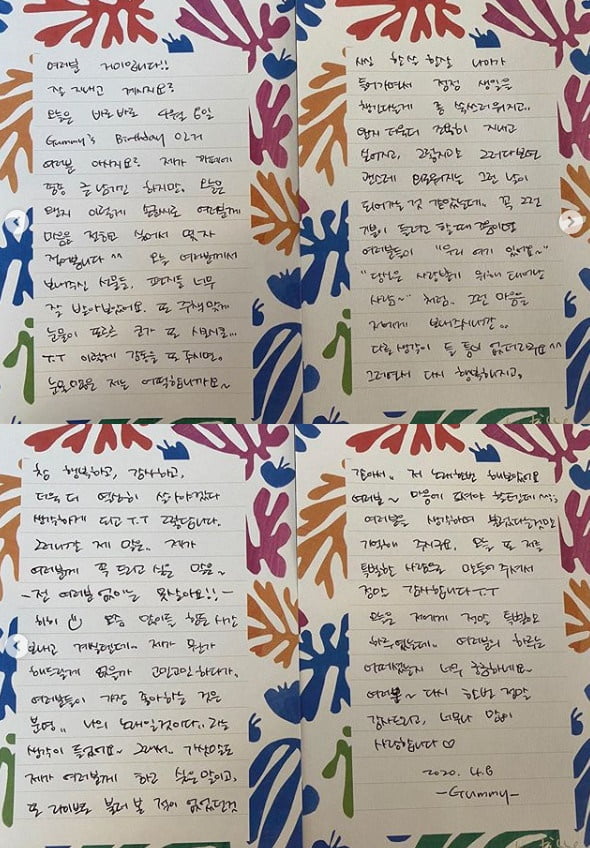 여러분 거미입니다!!
잘 지내고 계시지요?
오늘은 바로바로 4월 8일
Gummy's Birthday 인거
여러분 아시지요? 제가 카페에
종종 글 남기긴 하지만, 오늘은
왠지 이렇게 손글씨로 여러분께
마음을 전하고 싶어서 몇 자
적어봅니다 ^^ 오늘 여러분께서
보내주신 선물들, 편지들 너무
잘 받아보았어요. 또 주책맞게
눈물이 또르르 코가 또 시큰시큰...
T.T 이렇게 감동을 또 주시면..
눈물많은 저는 어떡합니까요~
사실 한살 한살 나이가
들어가면서 점점 생일을
챙긴다는게 좀 쑥쓰러워지고..
왠지 더욱더 조용히 지내고
싶어지고, 그렇지만 그러다보면
괜스레 외로워지는 그런 날이
되어가는 것 같았는데.. 꼭 그런
기분이 들려고 할 때 쯤이면
여러분들이 "우리 여기 있어요~"
"당신은 사랑받기 위해 태어난
사람~" 처럼.. 그런 마음을
저에게 보내주시니깐..
다른생각이 들 틈이 없더라구요^^
그러면서 다시 행복해지고,
참 행복하고, 감사하고,
더욱 더 열심히 살아야겠다
생각하게 되고 T.T 그렇습니다.
그러니깐 제 말은.. 제가
여러분께 꼭 드리고 싶은 말은~
-전 여러분 없이는 못살아요!!-
히히 요즘 많이들 힘든 시간
보내고 계실텐데~ 제가 뭔가
해드릴게 없을까 고민고민 하다가,
여러분들이 가장 좋아하는 것은
분명.. 나의 노래일것이다.. 라는
생각이 들었어요~ 그래서.. 가삿말도
제가 여러분께 하고 싶은 말이고,
또 라이브로 불러 본 적이 없었던것
같아서.. 저 노래한번 해보았어요
여러분~ 마음에 드셔야 할텐데^^;;
여러분을 생각하며 불렀다는것만
기억해 주시구요, 오늘 또 저를
특별한 사람으로 만들어 주셔서
정말 감사합니다 T.T
오늘은 저에게 정말 특별한
하루였는데.. 여러분의 하루는
어떠셨는지 너무 궁금하네요~
여러분~ 다시 한번 정말
감사드리고, 너무나 많이
사랑합니다 ♡
2020. 4. 8
-Gummy-